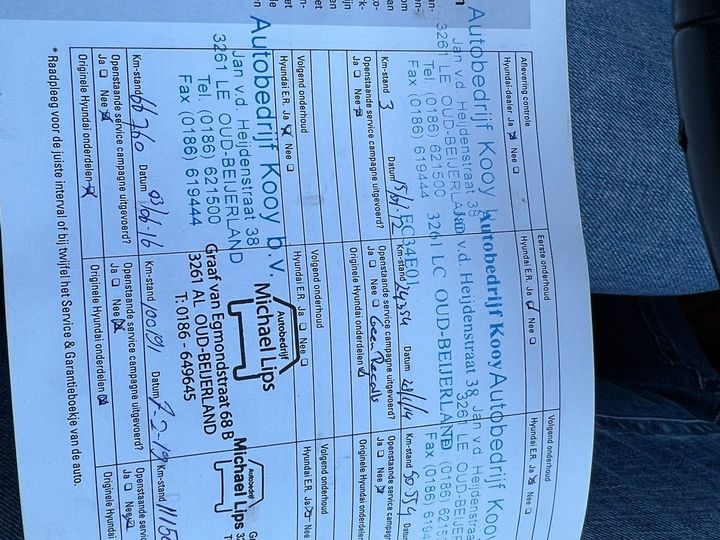 Aflevering controle
Hyundai-dealer Ja ☒ Nee ☐
Autobedrijf Kooy
Jan v.d. Heijdenstraat 38
3261 LE OUD-BEIJERLAND
Tel. (0186) 621500
Fax (0186) 619444
Km-stand 3 Datum
Openstaande service campagne uitgevoerd?
Ja ☐ Nee ☒
Eerste onderhoud
Hyundai E.R. Ja ☒ Nee ☐
Autobedrijf Kooy
Jan v.d. Heijdenstraat 38
3261 LC OUD-BEIJERLAND
Km-stand 24354 Datum
Openstaande service campagne uitgevoerd?
Ja ☐ Nee ☐ Geen Recalls
Originele Hyundai onderdelen ☒
Volgend onderhoud
Hyundai E.R. Ja ☒ Nee ☐
Autobedrijf Kooy
Jan v.d. Heijdenstraat 38
3261 LE OUD-BEIJER
Tel. (0186) 621
Fax (0186) 6194
Km-stand 50554
Openstaande service campagne
Ja ☐ Nee ☒
Originele Hyundai
Volgend onderhoud
Hyundai E.R. Ja ☒ Nee ☐
Autobedrijf Kooy b.v.
Jan v.d. Heijdenstraat 38
3261 LE OUD-BEIJERLAND
Tel. (0186) 621500
Fax (0186) 619444
Km-stand 66760 Datum
Openstaande service campagne uitgevoerd?
Ja ☐ Nee ☒
Originele Hyundai onderdelen ☒
Volgend onderhoud
Hyundai E.R. Ja ☐ Nee ☐
Autobedrijf
Michael Lips
Graaf van Egmondstraat 68 B
3261 AL OUD-BEIJERLAND
T: 0186 - 649645
Km-stand 100191 Datum 7-2-19
Openstaande service campagne uitgevoerd?
Ja ☐ Nee ☒
Originele Hyundai onderdelen ☒
Volgend onderhoud
Hyundai E.R. Ja ☒ Nee
Autobedrijf
Michael Lips
Km-stand
Openstaande servi
Ja ☐ Nee ☒
Originele Hyundai
* Raadpleeg voor de juiste interval of bij twijfel het Service & Garantieboekje van de auto.